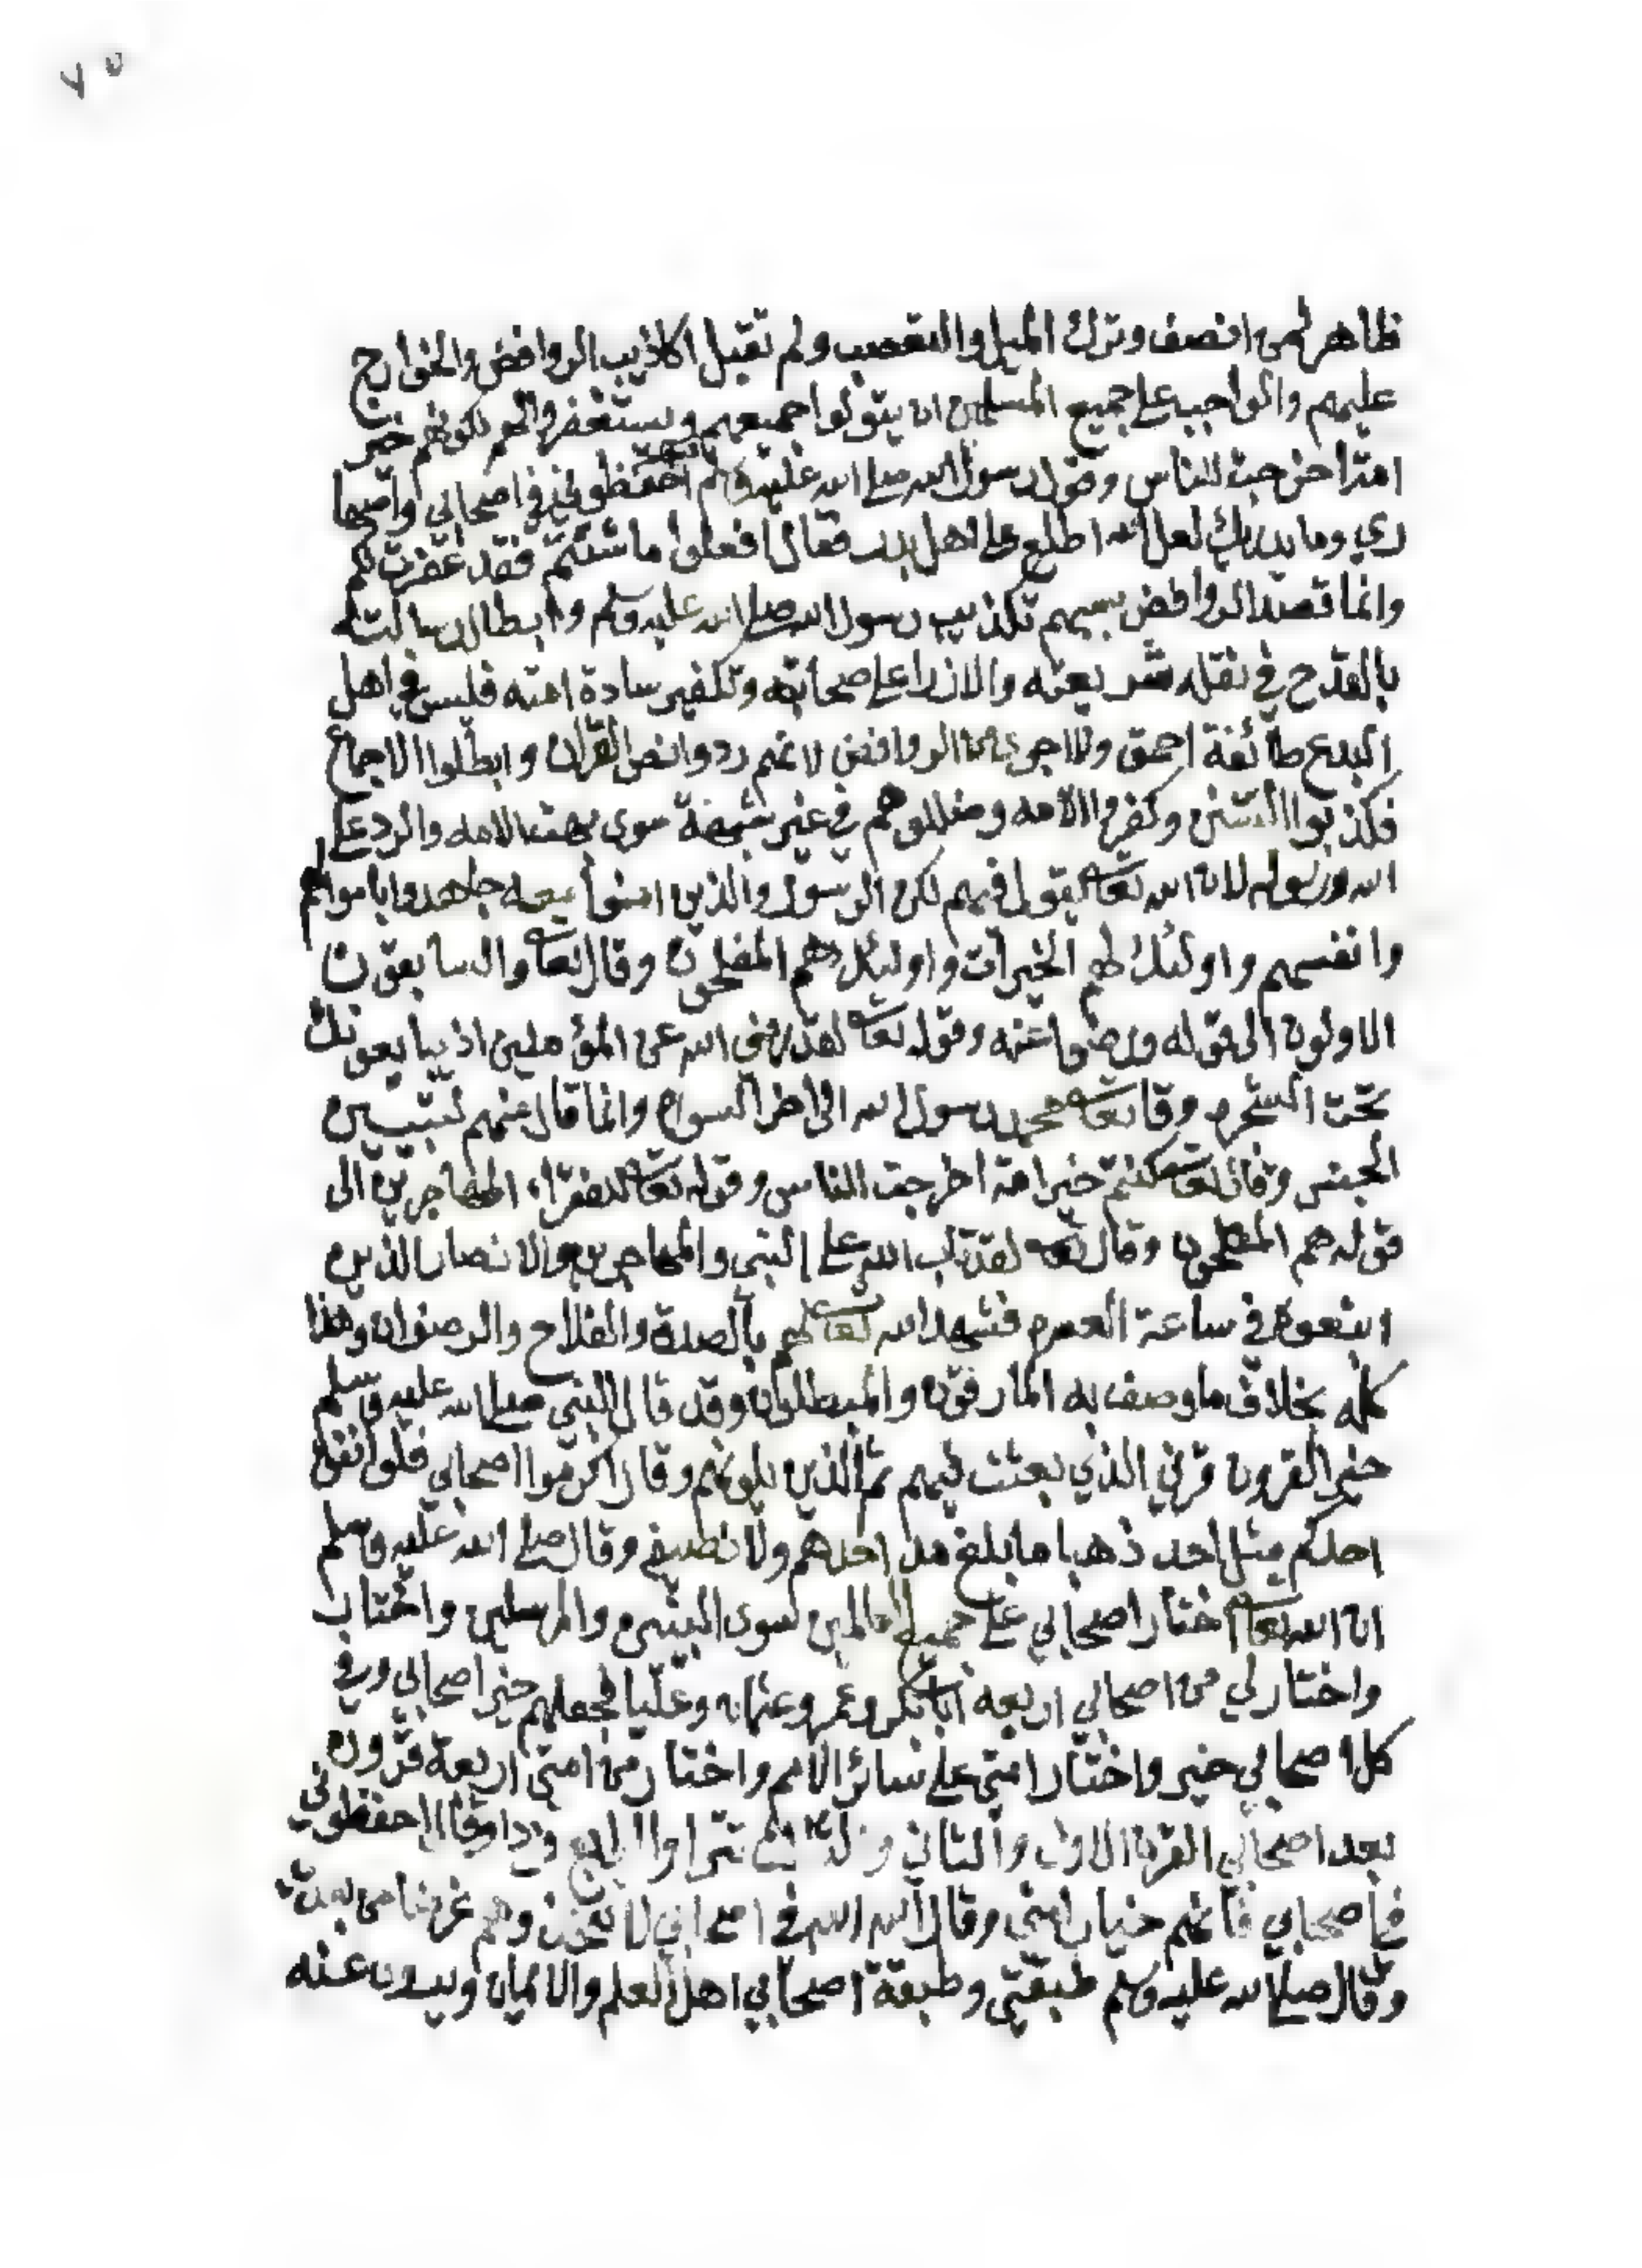 ٧٥
ظاهر لمن انصف وترك الميل والتعصب ولم تقبل اكاذيب الروافض والخوارج
عليهم والواجب على جميع المسلمين ان يتولوا جميعهم ويستغفروا لهم لكونهم خير
امة اخرجت للناس وقول رسول الله صلى الله عليه وسلم احفظوني في اصحابي واصها
ري وما يدريك لعل الله اطلع على اهل بدر فقال افعلوا ما شئتم فقد غفرت لكم
وانما قصد الروافض بسبهم تكذيب رسول الله صلى الله عليه وسلم وابطال رسالته
بالقدح في نقله شريعته والازرا على صحابته وتكفير سادة امته فليس في اهل
البدع طائفة احمق ولا اجرى الروافض لانهم ردوا نص القران وابطلوا الاجماع
فكذبوا السنن وكفروا الامه وضللوهم في غير شبهة سوى بهت الامه والرد على
الله ورسوله لان الله تعالى يقول فيهم لكن الرسول والذين امنوا معه جاهدوا باموالهم
وانفسهم واولئك لهم الخيرات واوليك هم المفلحون وقال تعالى والسابقون
الاولون الى قوله ورضوا عنه وقوله تعالى لقد رضي الله عن المؤمنين اذ يبايعونك
تحت الشجره وقا تعالى محمد رسول الله الى اخر السوره وانما قال منهم لتبيين
الجنس وقال تعالى كنتم خير امة اخرجت للناس وقوله تعالى للفقراء المهاجرين الى
قوله هم المفلحون وقال تعالى لقد تاب الله على النبي والمهاجرين والانصار الذين
اتبعوه في ساعة العسره فشهد الله تعالى لهم بالصدق والفلاح والرضوان وهذا
كله بخلاف ما وصف به المارقون والمبطلون وقد قال النبي صلى الله عليه وسلم
خير القرون قرني الذي بعثت فيهم ثم الذين يلونهم وقال اكرموا اصحابي فلو انفق
احدكم مثل احد ذهبا ما بلغ مد احدهم ولا نصيفه وقال صلى الله عليه وسلم
ان الله تعالى اختار اصحابي على جميع العالمين سوى النبيين والمرسلين واختار
واختار لي من اصحابي اربعه ابا بكر وعمر وعثمان وعليا فجعلهم خير اصحابي وفي
كل اصحابي خير واختار امتي على سائر الامم واختار من امتي اربعة قرون
بعد اصحابي القرن الاول والثاني والثالث تترا والرابع فردا وقال احفظوني
في اصحابي فانهم خيار امتي وقال الله الله في اصحابي لا تتخذوهم غرضا من بعدي
وقال صلى الله عليه وسلم طبقتي وطبقة اصحابي اهل العلم والايمان ويروى عنه